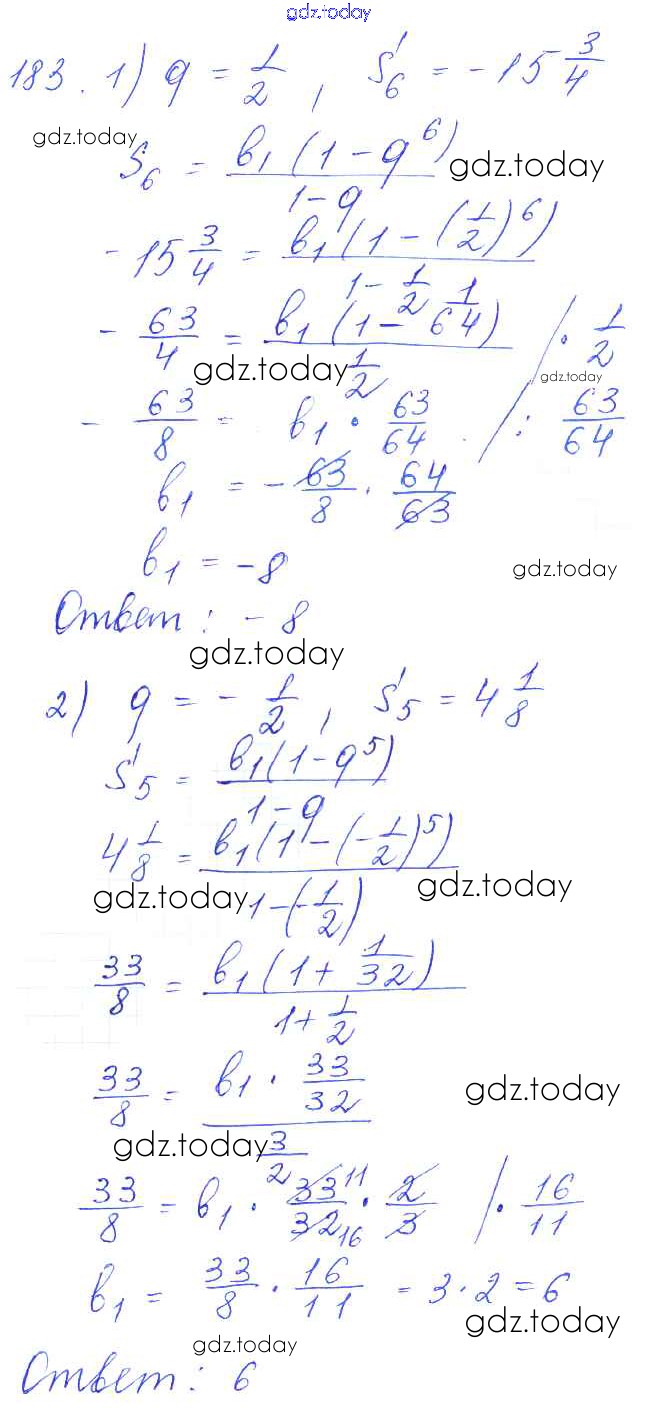 gdz.today
183. 1) q = 1/2, S₆ = -15 3/4
gdz.today
S₆ = b₁(1-q⁶)/(1-q) gdz.today
-15 3/4 = b₁(1-(1/2)⁶)/(1-1/2)
-63/4 = b₁(1-1/64)/(1/2) /· 1/2
gdz.today gdz.today
-63/8 = b₁ · 63/64 /: 63/64
b₁ = -63/8 · 64/63
b₁ = -8
gdz.today
Ответ: -8
gdz.today
2) q = -1/2, S₅ = 4 1/8
S₅ = b₁(1-q⁵)/(1-q)
4 1/8 = b₁(1-(-1/2)⁵)/(1-(-1/2))
gdz.today gdz.today
33/8 = b₁(1+1/32)/(1+1/2)
33/8 = (b₁ · 33/32)/(3/2)
gdz.today
gdz.today
33/8 = b₁ · 33 11/32 16 · 2/3 /· 16/11
b₁ = 33/8 · 16/11 = 3·2 = 6
gdz.today
gdz.today
Ответ: 6